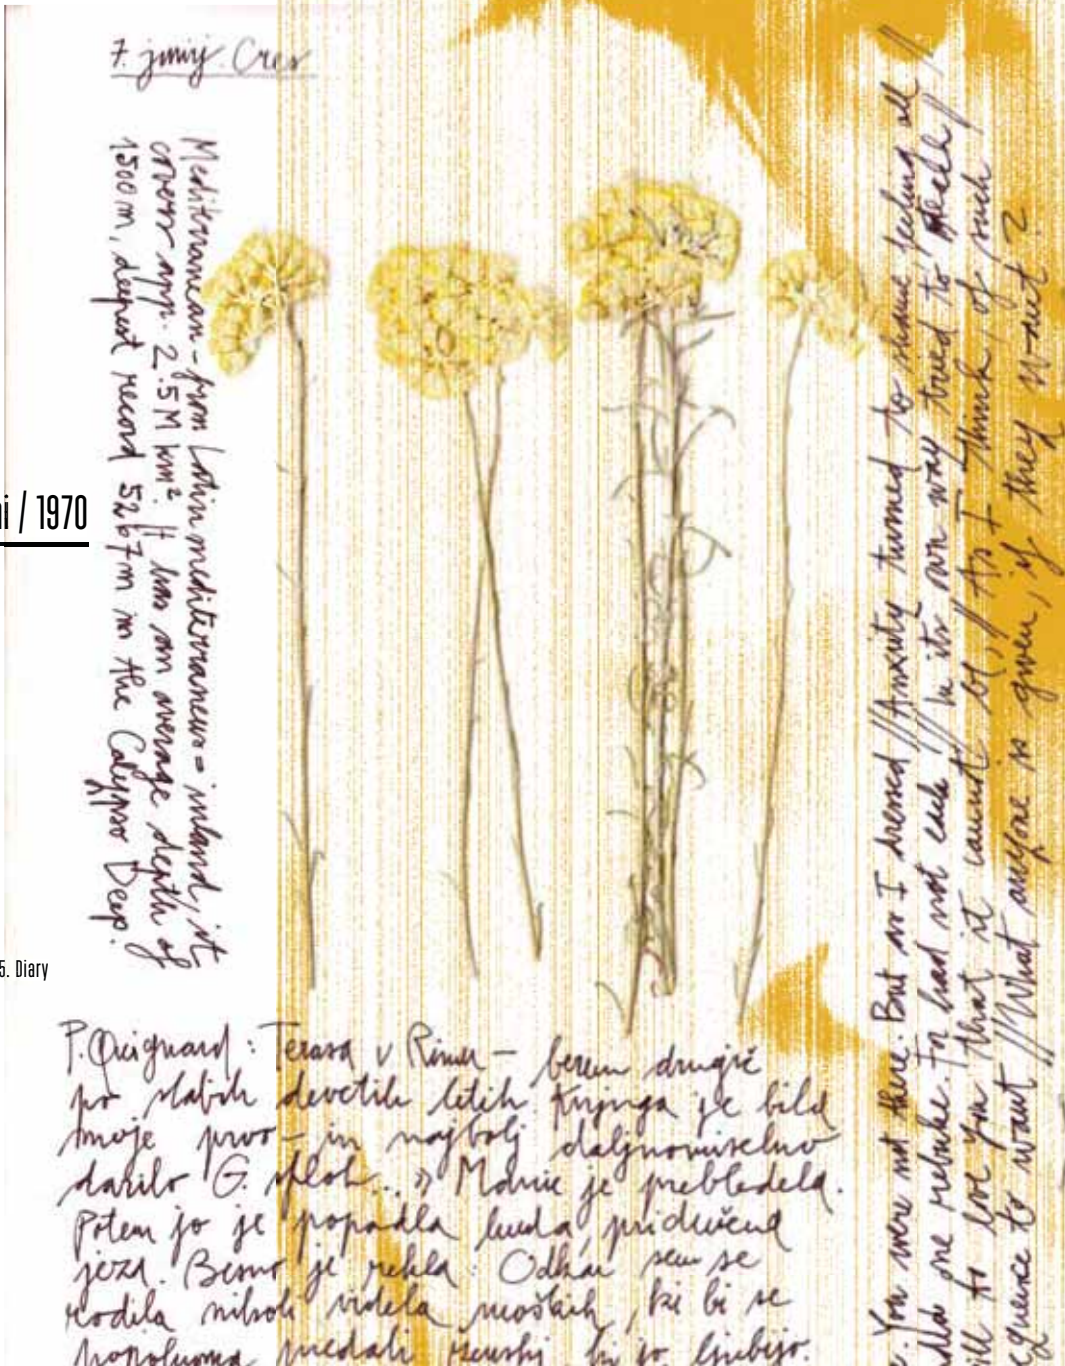 7. junij. Cres
Mediterranean - from Latin mediterraneus = inland, it
covers apr. 2.5M km². It has an average depth of
1500m, deepest record 5267m in the Calypso Deep.
i / 1970
5. Diary
P. Quignard: Terasa v Rimu – berem drugič
po slabih devetih letih. Knjiga je bila
moje prvo – in najbolj daljnomiselno
darilo G. sploh... » Marie je prebledela.
Potem jo je popadla huda, pridušena
jeza. Besno je rekla: Odkar sem se
rodila nikoli videla moških, ki bi se
popolnoma predali ženski, ki jo ljubijo.
You were not there. But as I dressed // Anxiety turned to shame, feeling all //
one rebuke. For had not each // in its own way tried to teach //
to love you that it cannot be, // As I think, of such
quence to want // What anyone is given, if they want?